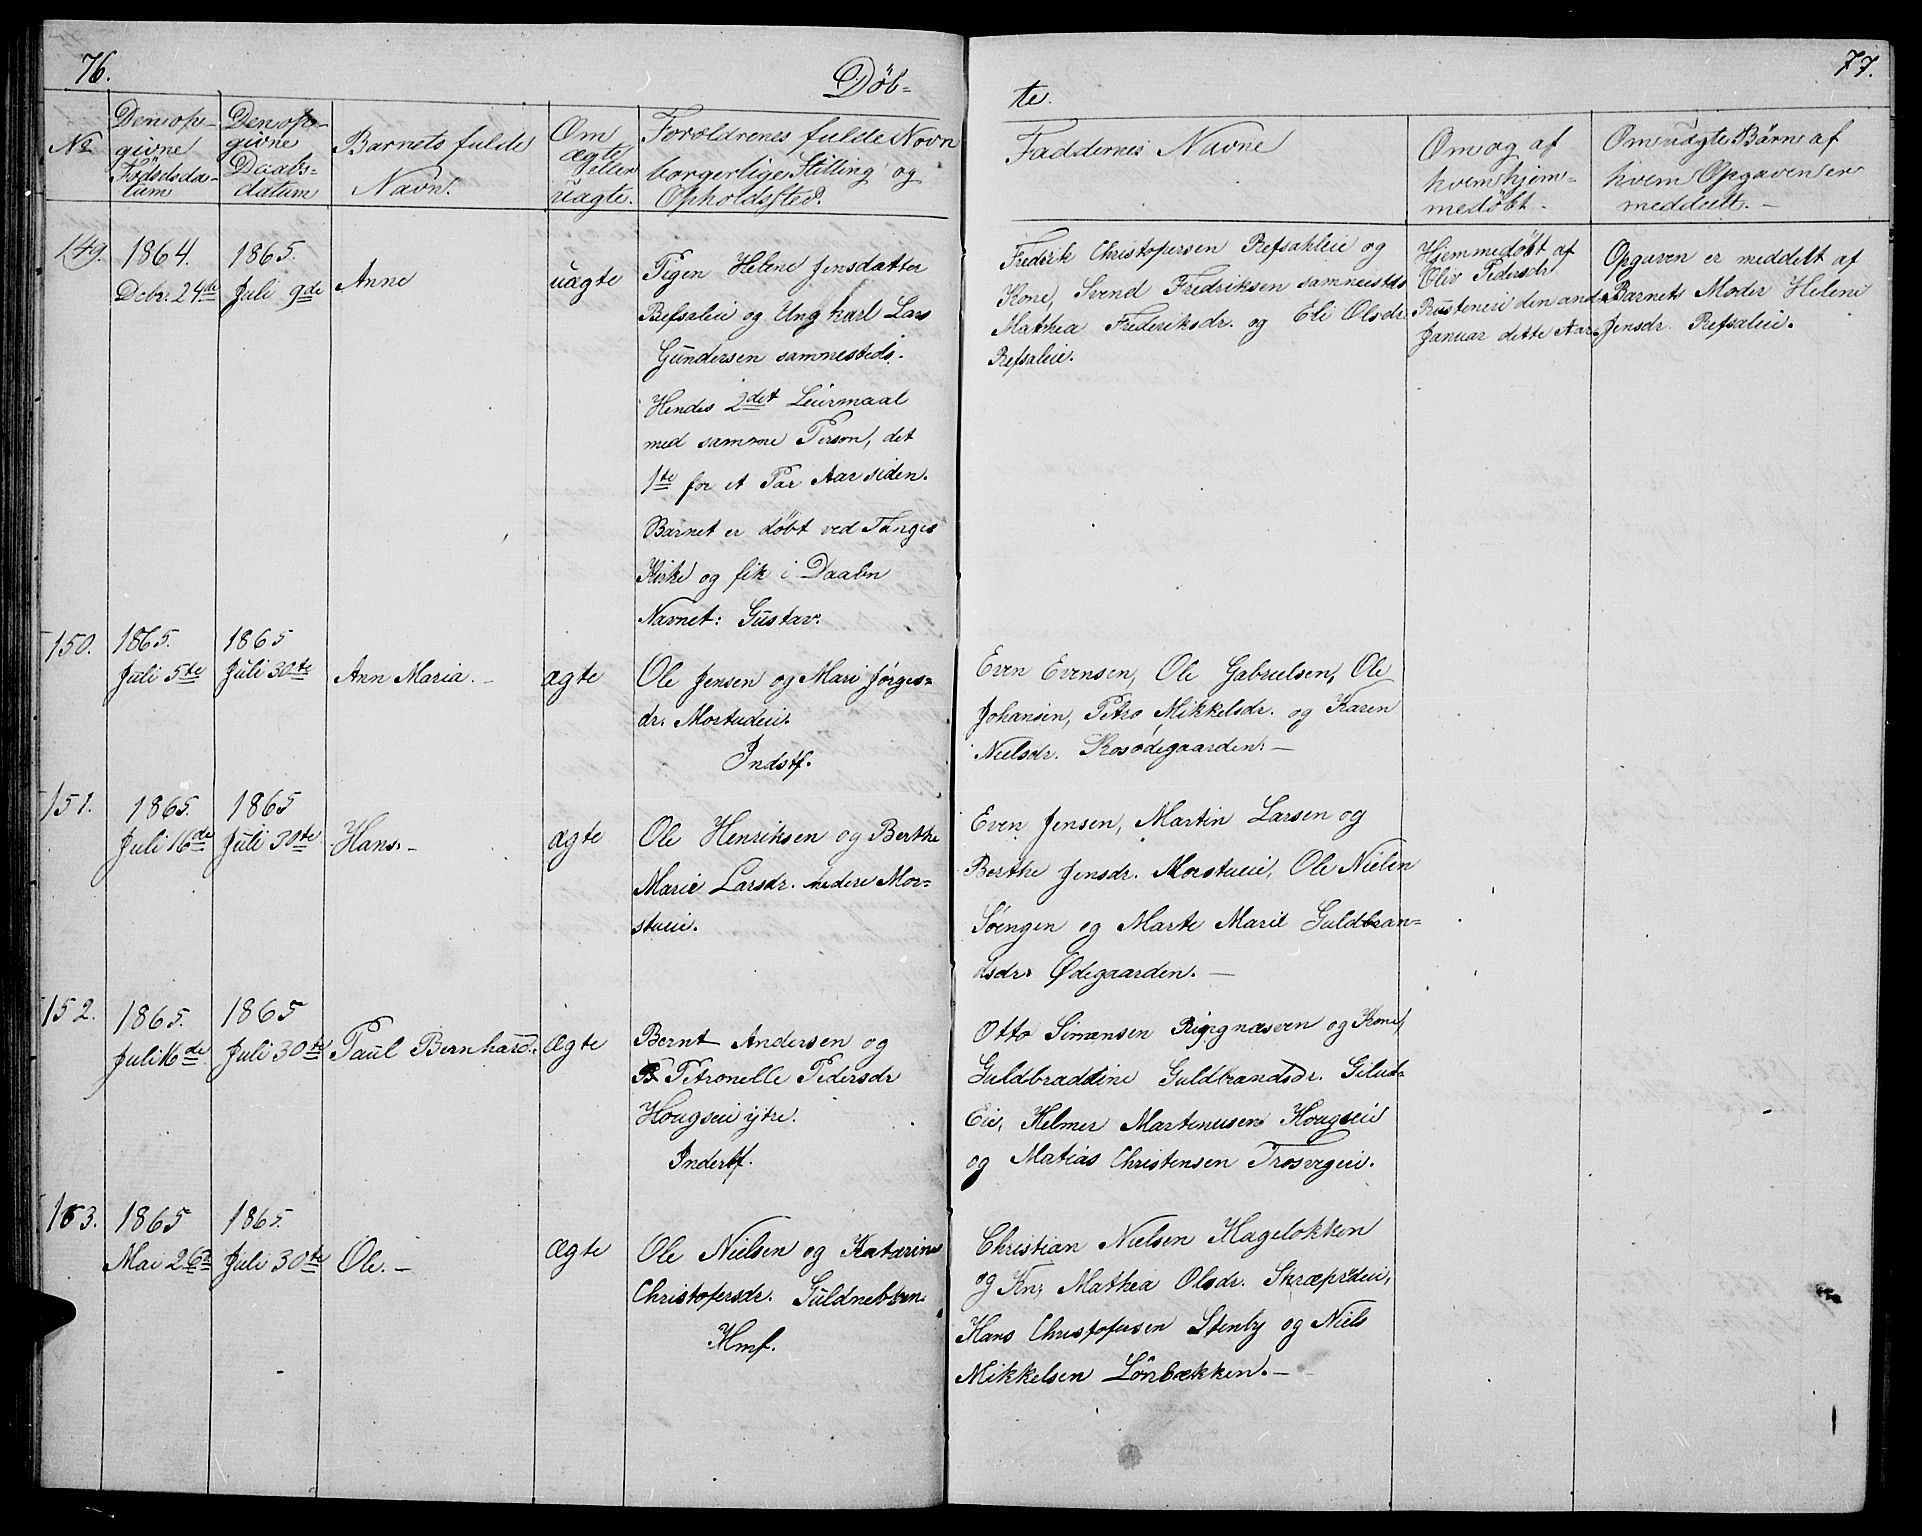 76.
Döb-
te.
77.
No
Den op-
givne
Födselsda-
tum
Den op-
givne
Daabs-
datum
Barnets fulde
Navn.
Om
ægte
eller
uægte.
Forældrenes fulde Navn
borgerlige Stilling og
Opholdssted.
Faddernes Navne
Om og af
hvem hjem-
medøbt.
Om uægte Börn af
hvem Opgaven er
meddeelt. —
149.
1864.
Debr. 24de
1865.
Juli 9de
Anne
uægte
Pigen Helene Jensdatter
Refsaleie og Ungkarl Lars
Gundersen sammesteds.
Hendes 2det Leiermaal
med samme Person, det
1te for et Par Aar siden.
Barnet er døbt ved Fanges
Kirke og fik i Daaben
Navnet: Gustav.
Frederik Christopersen Refsahleie og
Kone, Svend Fredriksen sammesteds
Mathea Frederiksdr. og Eli Olsdr.
Refsaleie.
Hjemmedøbt af
Oliv Pedersdr
Rusteneie den anden
Januar dette Aar.
Opgaven er meddelt af
Barnets Moder Helene
Jensdr. Refsaleie.
150.
1865.
Juli 5te
1865
Juli 30te
Ann Maria. —
ægte
Ole Jensen og Mari Jørges-
dr. Mortueeie.
Indstf.
Even Evensen, Ole Gabrielsen, Ole
Johansen, Petra Mikkelsdr. og Karen
Nielsdr. Rosødegaarden. —
151.
1865.
Juli 16de
1865
Juli 30te
Hans. —
ægte
Ole Henriksen og Berthe
Marie Larsdr. nedere Mor-
stueie.
Even Jensen, Martin Larsen og
Berthe Jensdr. Morstueie, Ole Nielen
Söengen og Marte Marie Guldbran-
dsdr. Ødegaarden. —
152.
1865.
Juli 16de
1865
Juli 30te
Paul Bernhard.
Ægte
Bernt Andersen og
Petronelle Pedersdr
Hougseie ytre.
Inderstf.
Otto Simensen Ringnæseen og Kone
Guldbraddine Guldbrandsdr. Gilud-
Eie, Helmer Martinusen Hougseie
og Matias Christensen Trosvigeie.
153.
1865
Mai 26de
1865.
Juli 30te
Ole. —
Ægte
Ole Nielsen og Katarine
Christofersdr. Guldnebben.
Hmf.
Christian Nielsen Hagelokken
og Kn. Mathea Olsdr. Skræpreeie,
Hans Christofersen Stenby og Niels
Mikkelsen Lönbækken. —